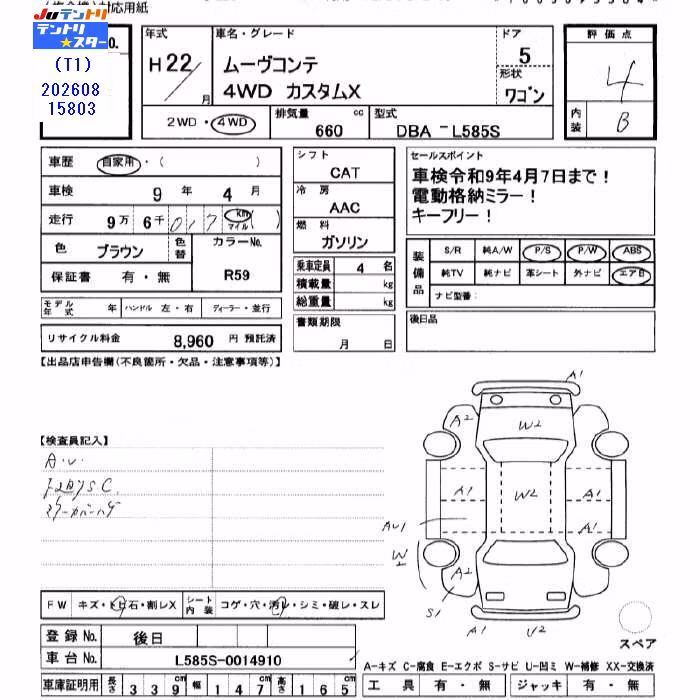 対応用紙
JUテントリ
テントリ
★スター
No.
(T1)
202608
15803
年式
H22/
月
車名・グレード
ムーヴコンテ
4WD カスタムX
ドア
5
形状
ワゴン
評価点
4
内装
B
2WD・4WD
排気量
660
cc
型式
DBA - L585S
車歴
自家用・( )
車検
9 年 4 月
走行
9万 6千 0 1 7 km マイル ( )
色
ブラウン
色替
カラーNo.
R59
保証書
有・無
モデル年式
年
ハンドル 左・右
ディーラー・並行
リサイクル料金
8,960 円 預託済
シフト
CAT
冷房
AAC
燃料
ガソリン
乗車定員
4 名
積載量
kg
総重量
kg
書類期限
月 日
セールスポイント
車検令和9年4月7日まで!
電動格納ミラー!
キーフリー!
装備品
S/R 純A/W P/S P/W ABS
純TV 純ナビ 革シート 外ナビ エアB
ナビ型番:
後日品
【出品店申告欄(不良箇所・欠品・注意事項等)】
【検査員記入】
A.U.
FW
キズ・トビ石・割レX
シート内装
コゲ・穴・汚レ・シミ・破レ・スレ
登録No.
後日
車台No.
L585S-0014910
車庫証明用
長さ
339
cm
幅
147
cm
高さ
165
cm
A1
A2
W2
A1
W2
A1
AU1
A1
W
A2
S1
A1
U2
スペア
A-キズ C-腐食 E-エクボ S-サビ U-凹ミ W-補修 XX-交換済
工具
有・無
ジャッキ
有・無